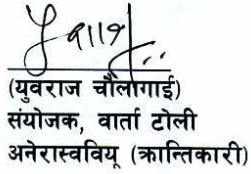 (युवराज चौलागाई)
संयोजक, वार्ता टोली
अनेरास्ववियू (क्रान्तिकारी)